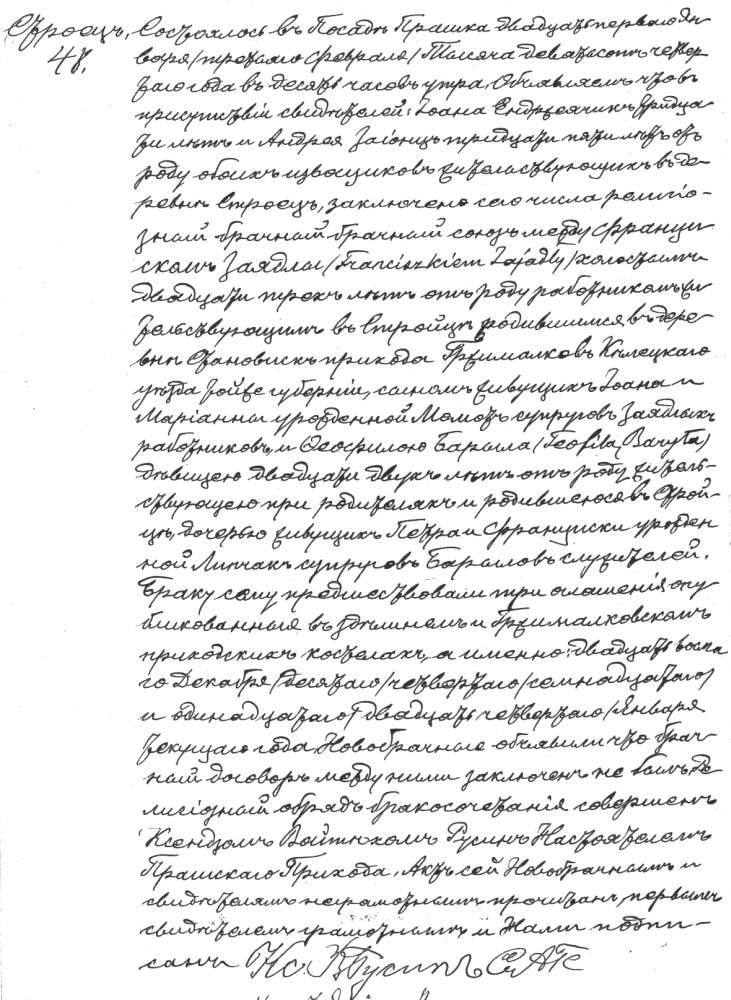 Строецъ,
48.
Состоялось въ Посадѣ Прашка двадцать перваго Ян
варя /третьяго Февраля/ Тысяча девятьсотъ четвер
таго года въ десять часовъ утра. Объявляемъ что въ
присутствіи свидѣтелей: Іоана Ендрѣячикъ тридца
ти лѣтъ и Андрея Заіонцъ тридцати пяти лѣтъ отъ
роду обоихъ извощиковъ жительствующихъ въ де
ревнѣ Строецъ, заключенъ сего числа религіо-
зный брачный брачный союзъ между Франци
скомъ Заядлы /Franciszkiem Zajadły/ холостымъ
двадцати трехъ лѣтъ отъ роду работникомъ жи
тельствующимъ въ Стройцѣ родившимся въ дере
внѣ Становискъ прихода Гржималковъ Кѣлецкаго
уѣзда тойже губерніи, сыномъ живущихъ Іоана и
Маріанны урожденной Момотъ супруговъ Заядлыхъ
работниковъ, и Теофилою Барыла /Teofila Baryła/
дѣвицею двадцати двухъ лѣтъ отъ роду житель-
ствующею при родителяхъ и родившеюся въ Строй-
цѣ, дочерью живущихъ Петра и Францишки урожден
ной Липчакъ супруговъ Барыловъ служителей.
Браку сему предшествовали три оглашенія опу
бликованныя въ здѣшнемъ и Гржималковскомъ
приходскихъ костелахъ, а именно: двадцать восьма
го Декабря /десятаго/ четвертаго /семнадцатаго/
и одинадцатаго /двадцать четвертаго/ Января
текущаго года. Новобрачные объявили что брач-
ный договоръ между ними заключенъ не былъ. Ре
лигіозный обрядъ бракосочетанія совершенъ
Ксендзомъ Войтѣхомъ Русинъ Настоятелемъ
Прашскаго Прихода. Актъ сей Новобрачнымъ и
свидѣтелямъ неграмотнымъ прочитанъ, первымъ
свидѣтелемъ грамотнымъ и Нами подпи-
санъ Кс. В Русинъ